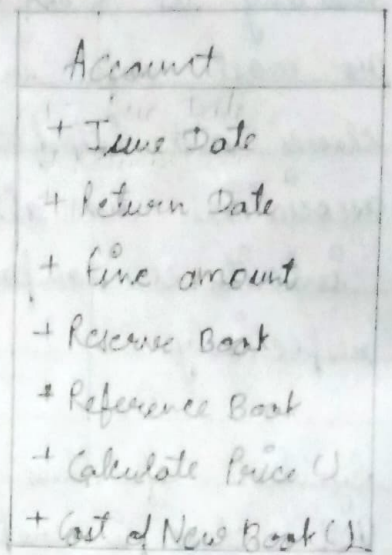 Account
+ Issue Date
+ Return Date
+ fine amount
+ Reserve Book
+ Reference Book
+ Calculate Price ()
+ Cost of New Book ()